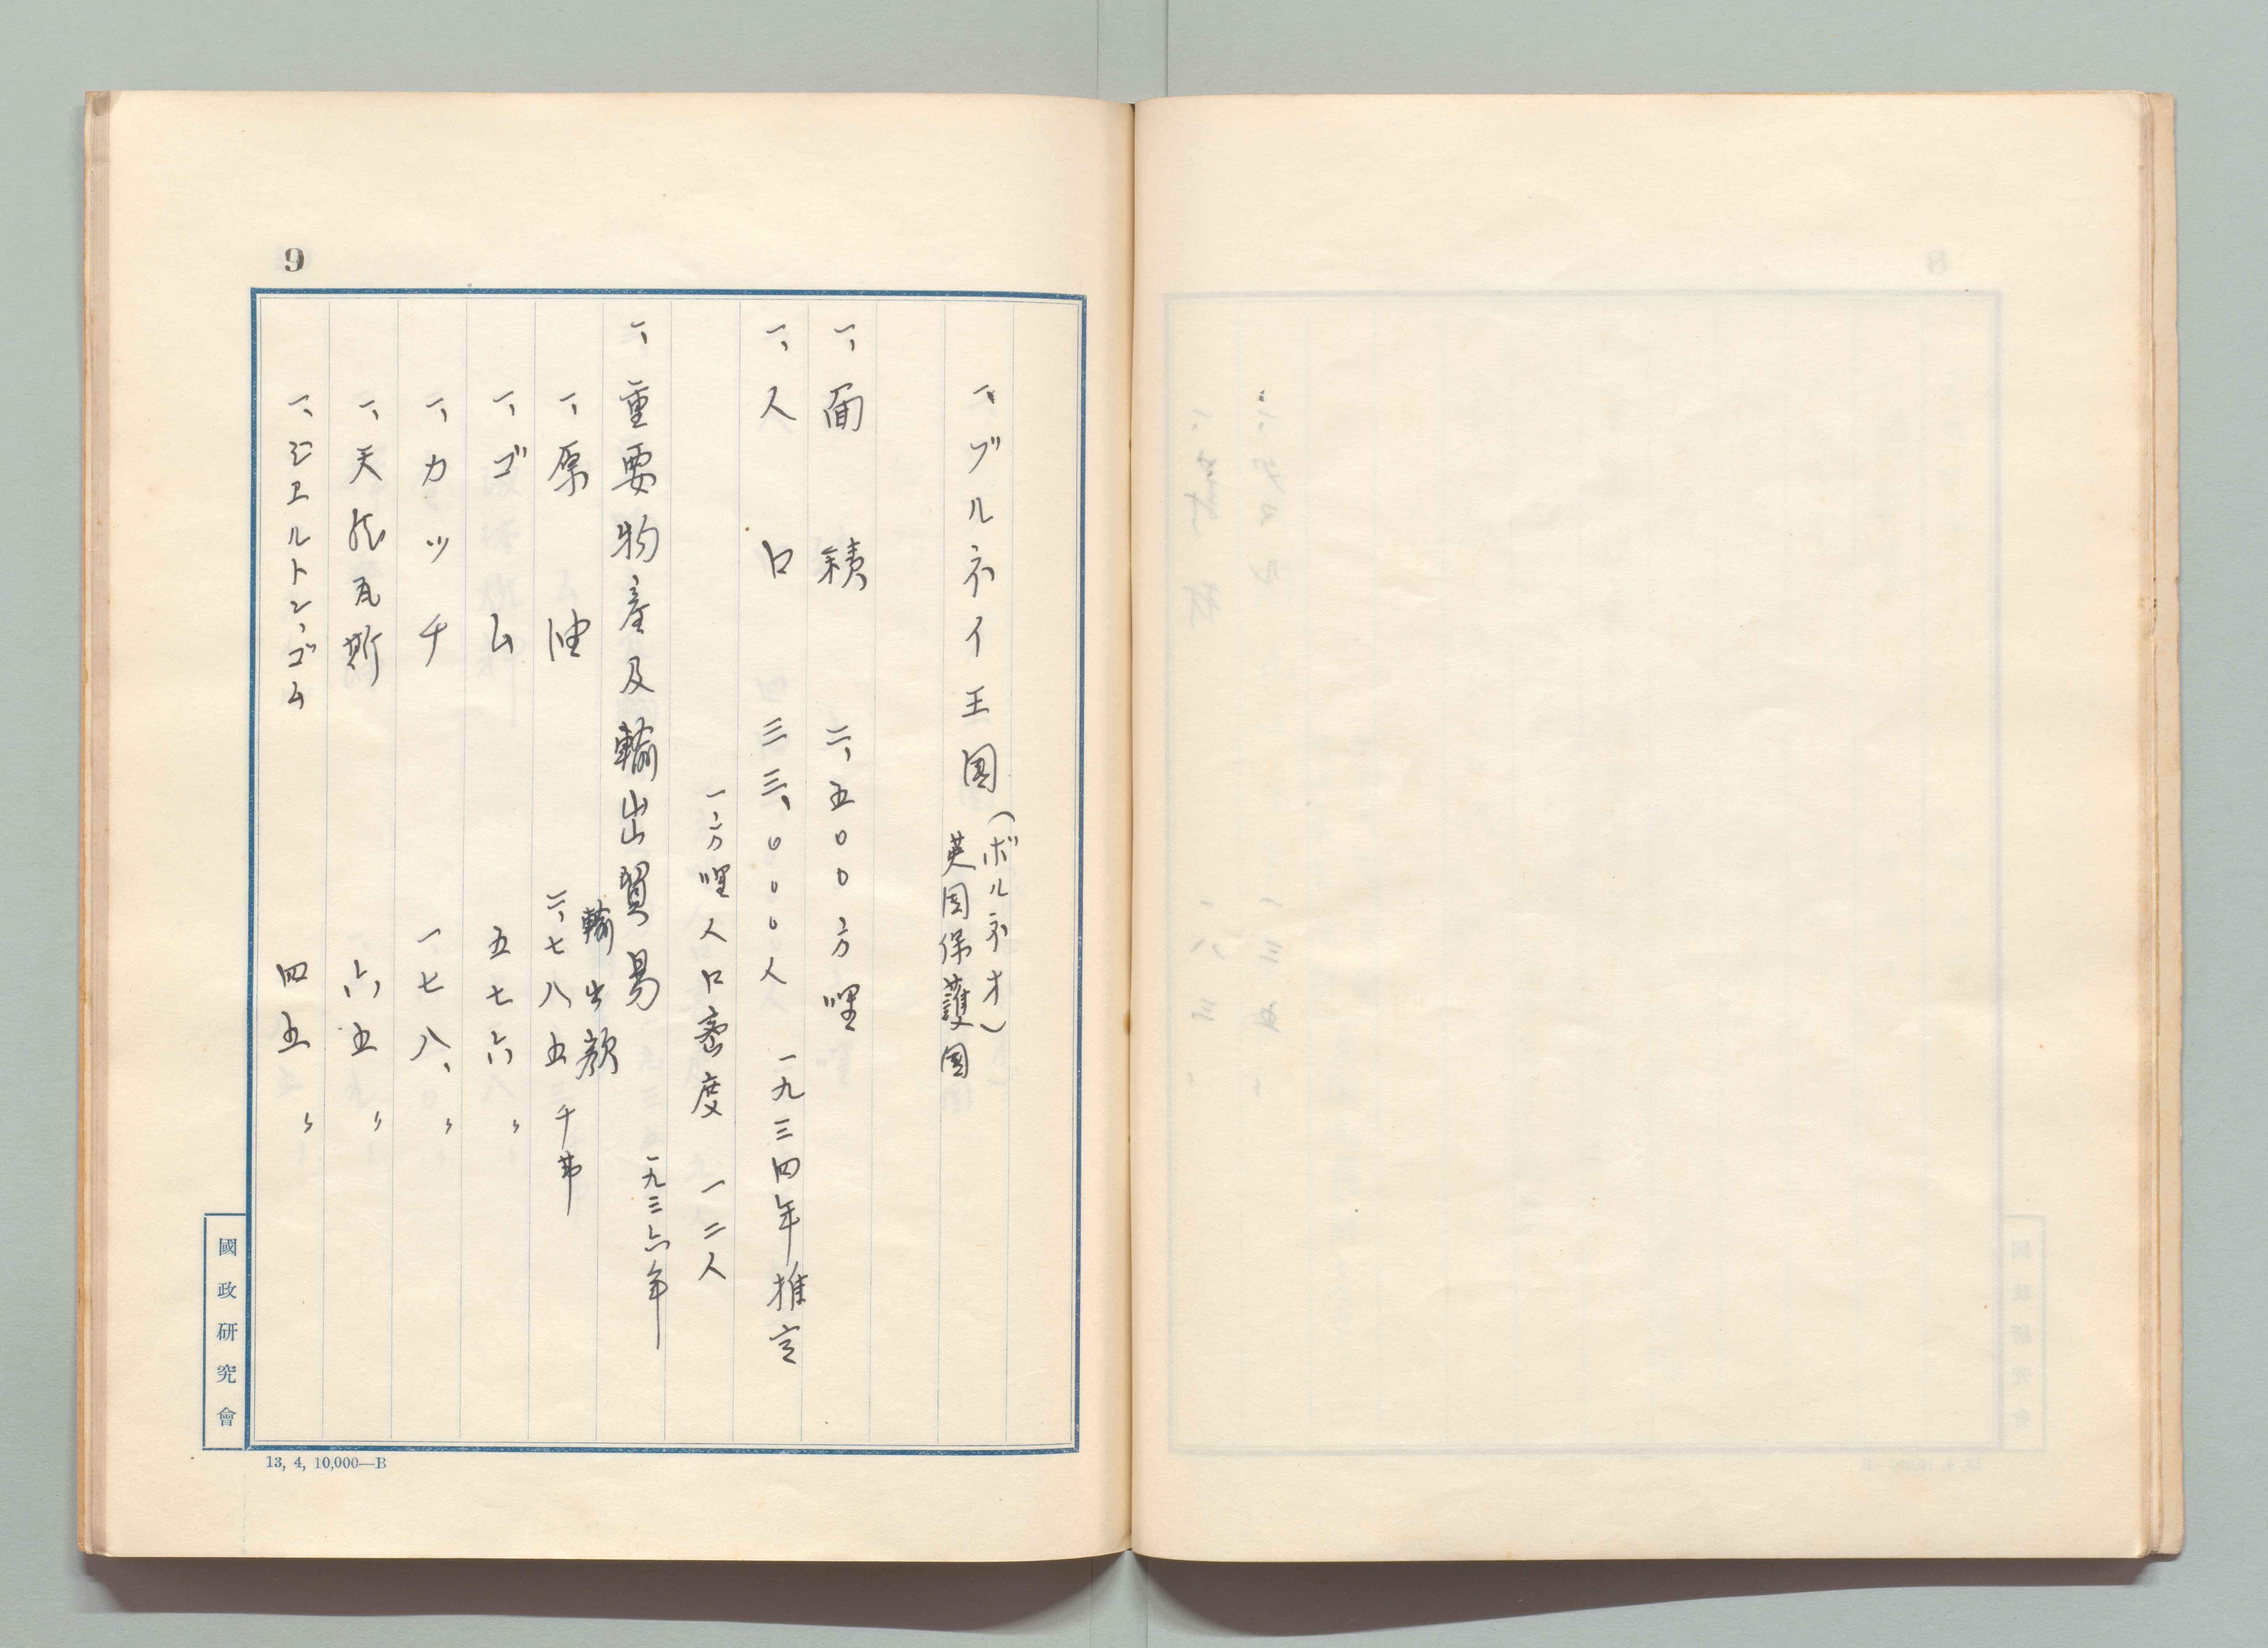 9
一、ブルネイ王国(ボルネオ)
英国保護国
一、面積 二、五〇〇方哩
一、人口 三三、〇〇〇人 一九三四年推定
一方哩人口密度 一二人
一、重要物産及輸出貿易 一九三六年
輸出額
一、原油 二、七八五千弗
一、ゴム 五七六〃
一、カッチ 一七八、〃
一、天然瓦斯 六五〃
一、ジエルトン、ゴム 四五〃
國政研究會
13, 4, 10,000—B